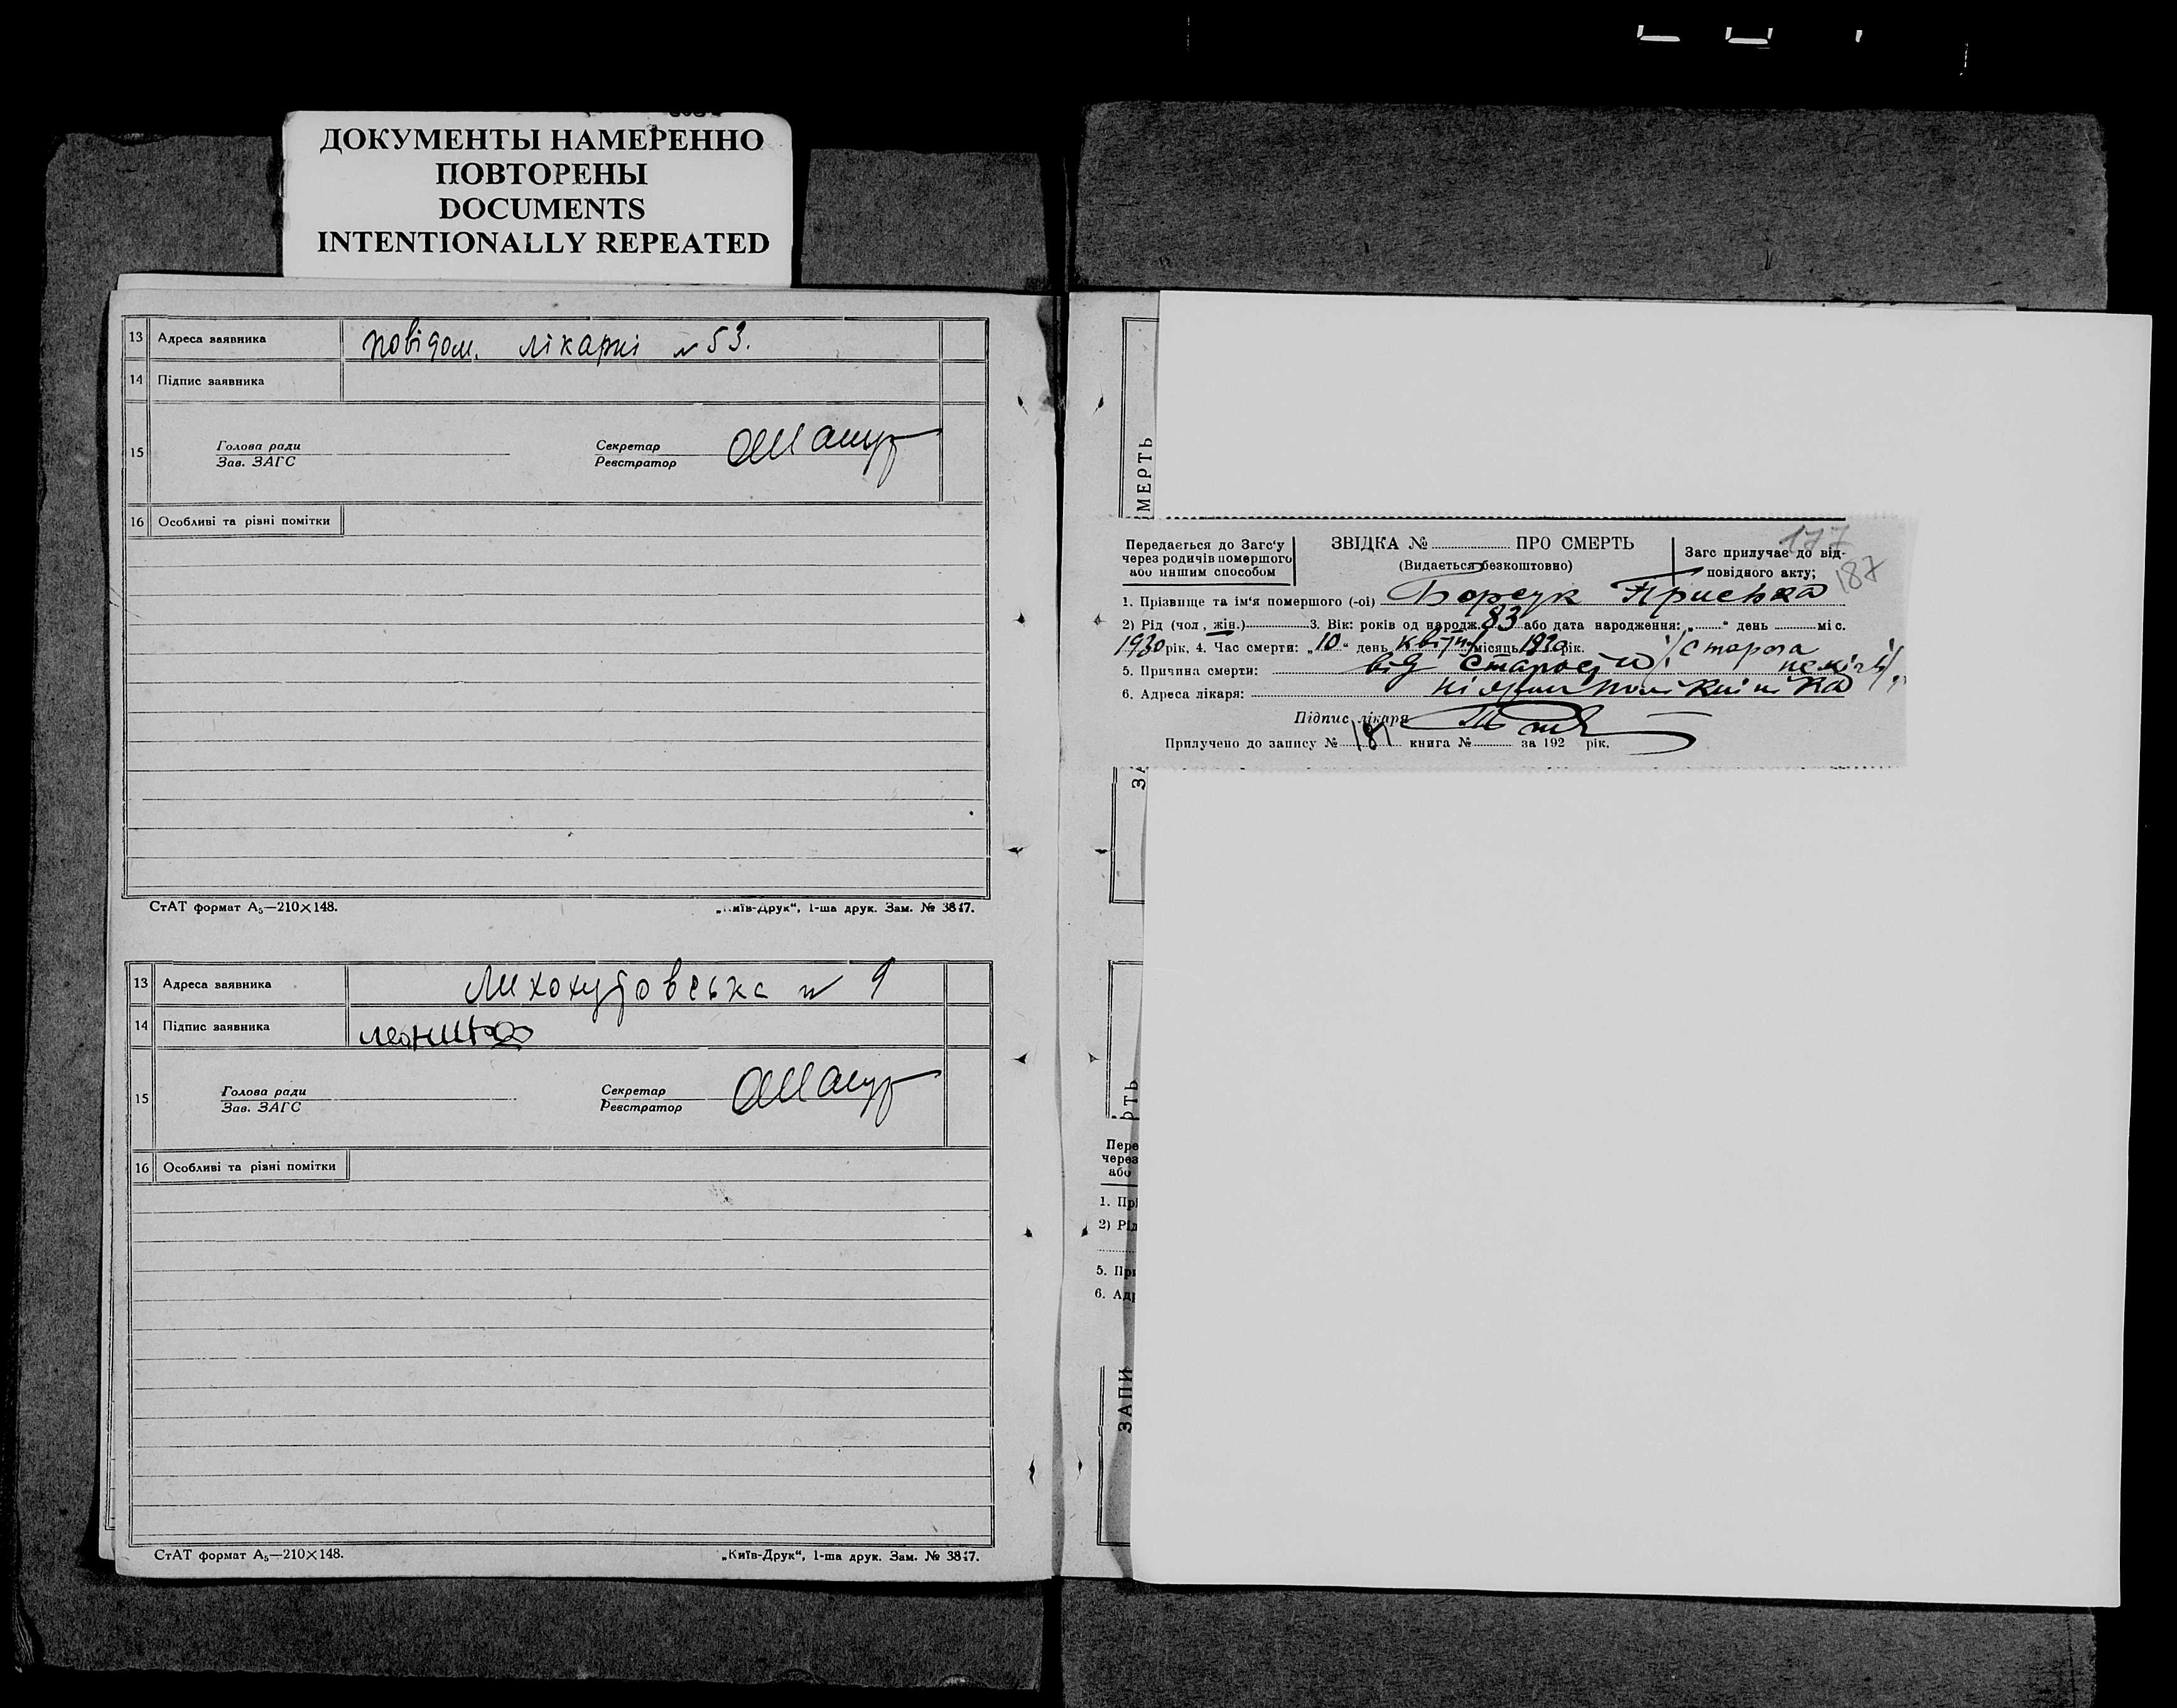 ДОКУМЕНТЫ НАМЕРЕННО
ПОВТОРЕНЫ
DOCUMENTS
INTENTIONALLY REPEATED
13 Адреса заявника повідом. лікарні № 53.
14 Підпис заявника
15 Голова ради Секретар
Зав. ЗАГС Реєстратор
16 Особливі та різні помітки
СтАТ формат А₅—210×148. „Київ-Друк“, 1-ша друк. Зам. № 3817.
13 Адреса заявника № 9
14 Підпис заявника
15 Голова ради Секретар
Зав. ЗАГС Реєстратор
16 Особливі та різні помітки
СтАТ формат А₅—210×148. „Київ-Друк“, 1-ша друк. Зам. № 3817.
МЕРТЬ
177
187
Передається до Загс'у
через родичів помершого
або иншим способом
ЗВІДКА № ПРО СМЕРТЬ
(Видається безкоштовно)
Загс прилучає до від-
повідного акту;
1. Прізвище та ім'я помершого (-ої) Борсук Приська
2) Рід (чол, жін.) 3. Вік: років од народж. 83 або дата народження: „ “ день міс.
1930 рік. 4. Час смерти: „10“ день квітня місяць 1930 рік.
5. Причина смерти: від старости /Стареча неміч/.
6. Адреса лікаря: поліклініка
Підпис лікаря
Прилучено до запису № 187 книга № за 192 рік.
ЗА
РТЬ
Пере
через
або
1. Прі
2) Рід
5. При
6. Адр
ЗАПИ